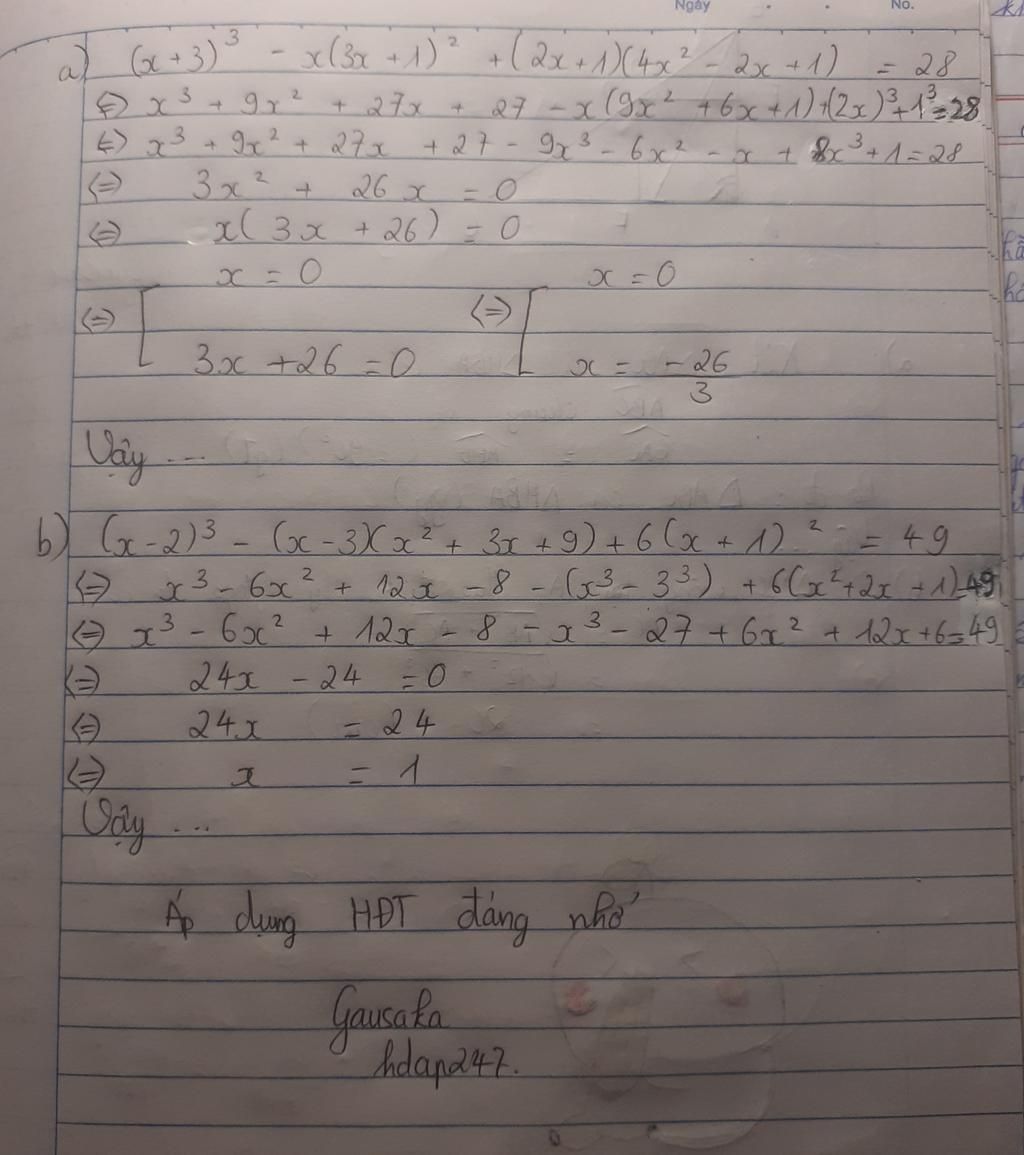 Ngày . . No.
a) (x+3)³ - x(3x+1)² + (2x+1)(4x² - 2x+1) = 28
⇔ x³ + 9x² + 27x + 27 - x(9x² + 6x+1)+(2x)³+1³=28
⇔ x³ + 9x² + 27x + 27 - 9x³ - 6x² - x + 8x³+1=28
⇔ 3x² + 26x = 0
⇔ x(3x + 26) = 0
x = 0 x = 0
⇔ [ ⇔ [
3x + 26 = 0 x = -26/3
Vậy ...
b) (x-2)³ - (x-3)(x² + 3x+9)+6(x+1)² = 49
⇔ x³ - 6x² + 12x - 8 - (x³ - 3³) + 6(x²+2x+1)=49
⇔ x³ - 6x² + 12x - 8 - x³ - 27 + 6x² + 12x+6=49
⇔ 24x - 24 = 0
⇔ 24x = 24
⇔ x = 1
Vậy ...
Áp dụng HĐT đáng nhớ
Gausaka
hdap247.